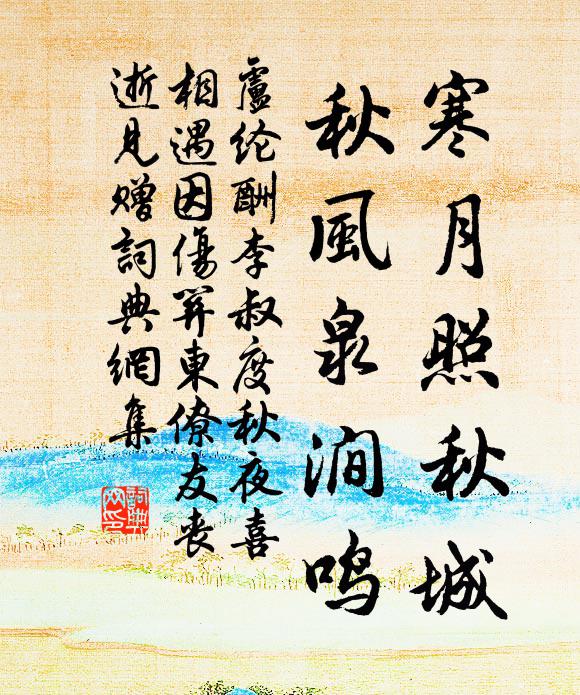 寒月照秋城
秋風泉澗鸣
盧纶酬李叔度秋夜喜
相遇因傷關東僚友喪
逝見贈詞典網集
詞典
网印